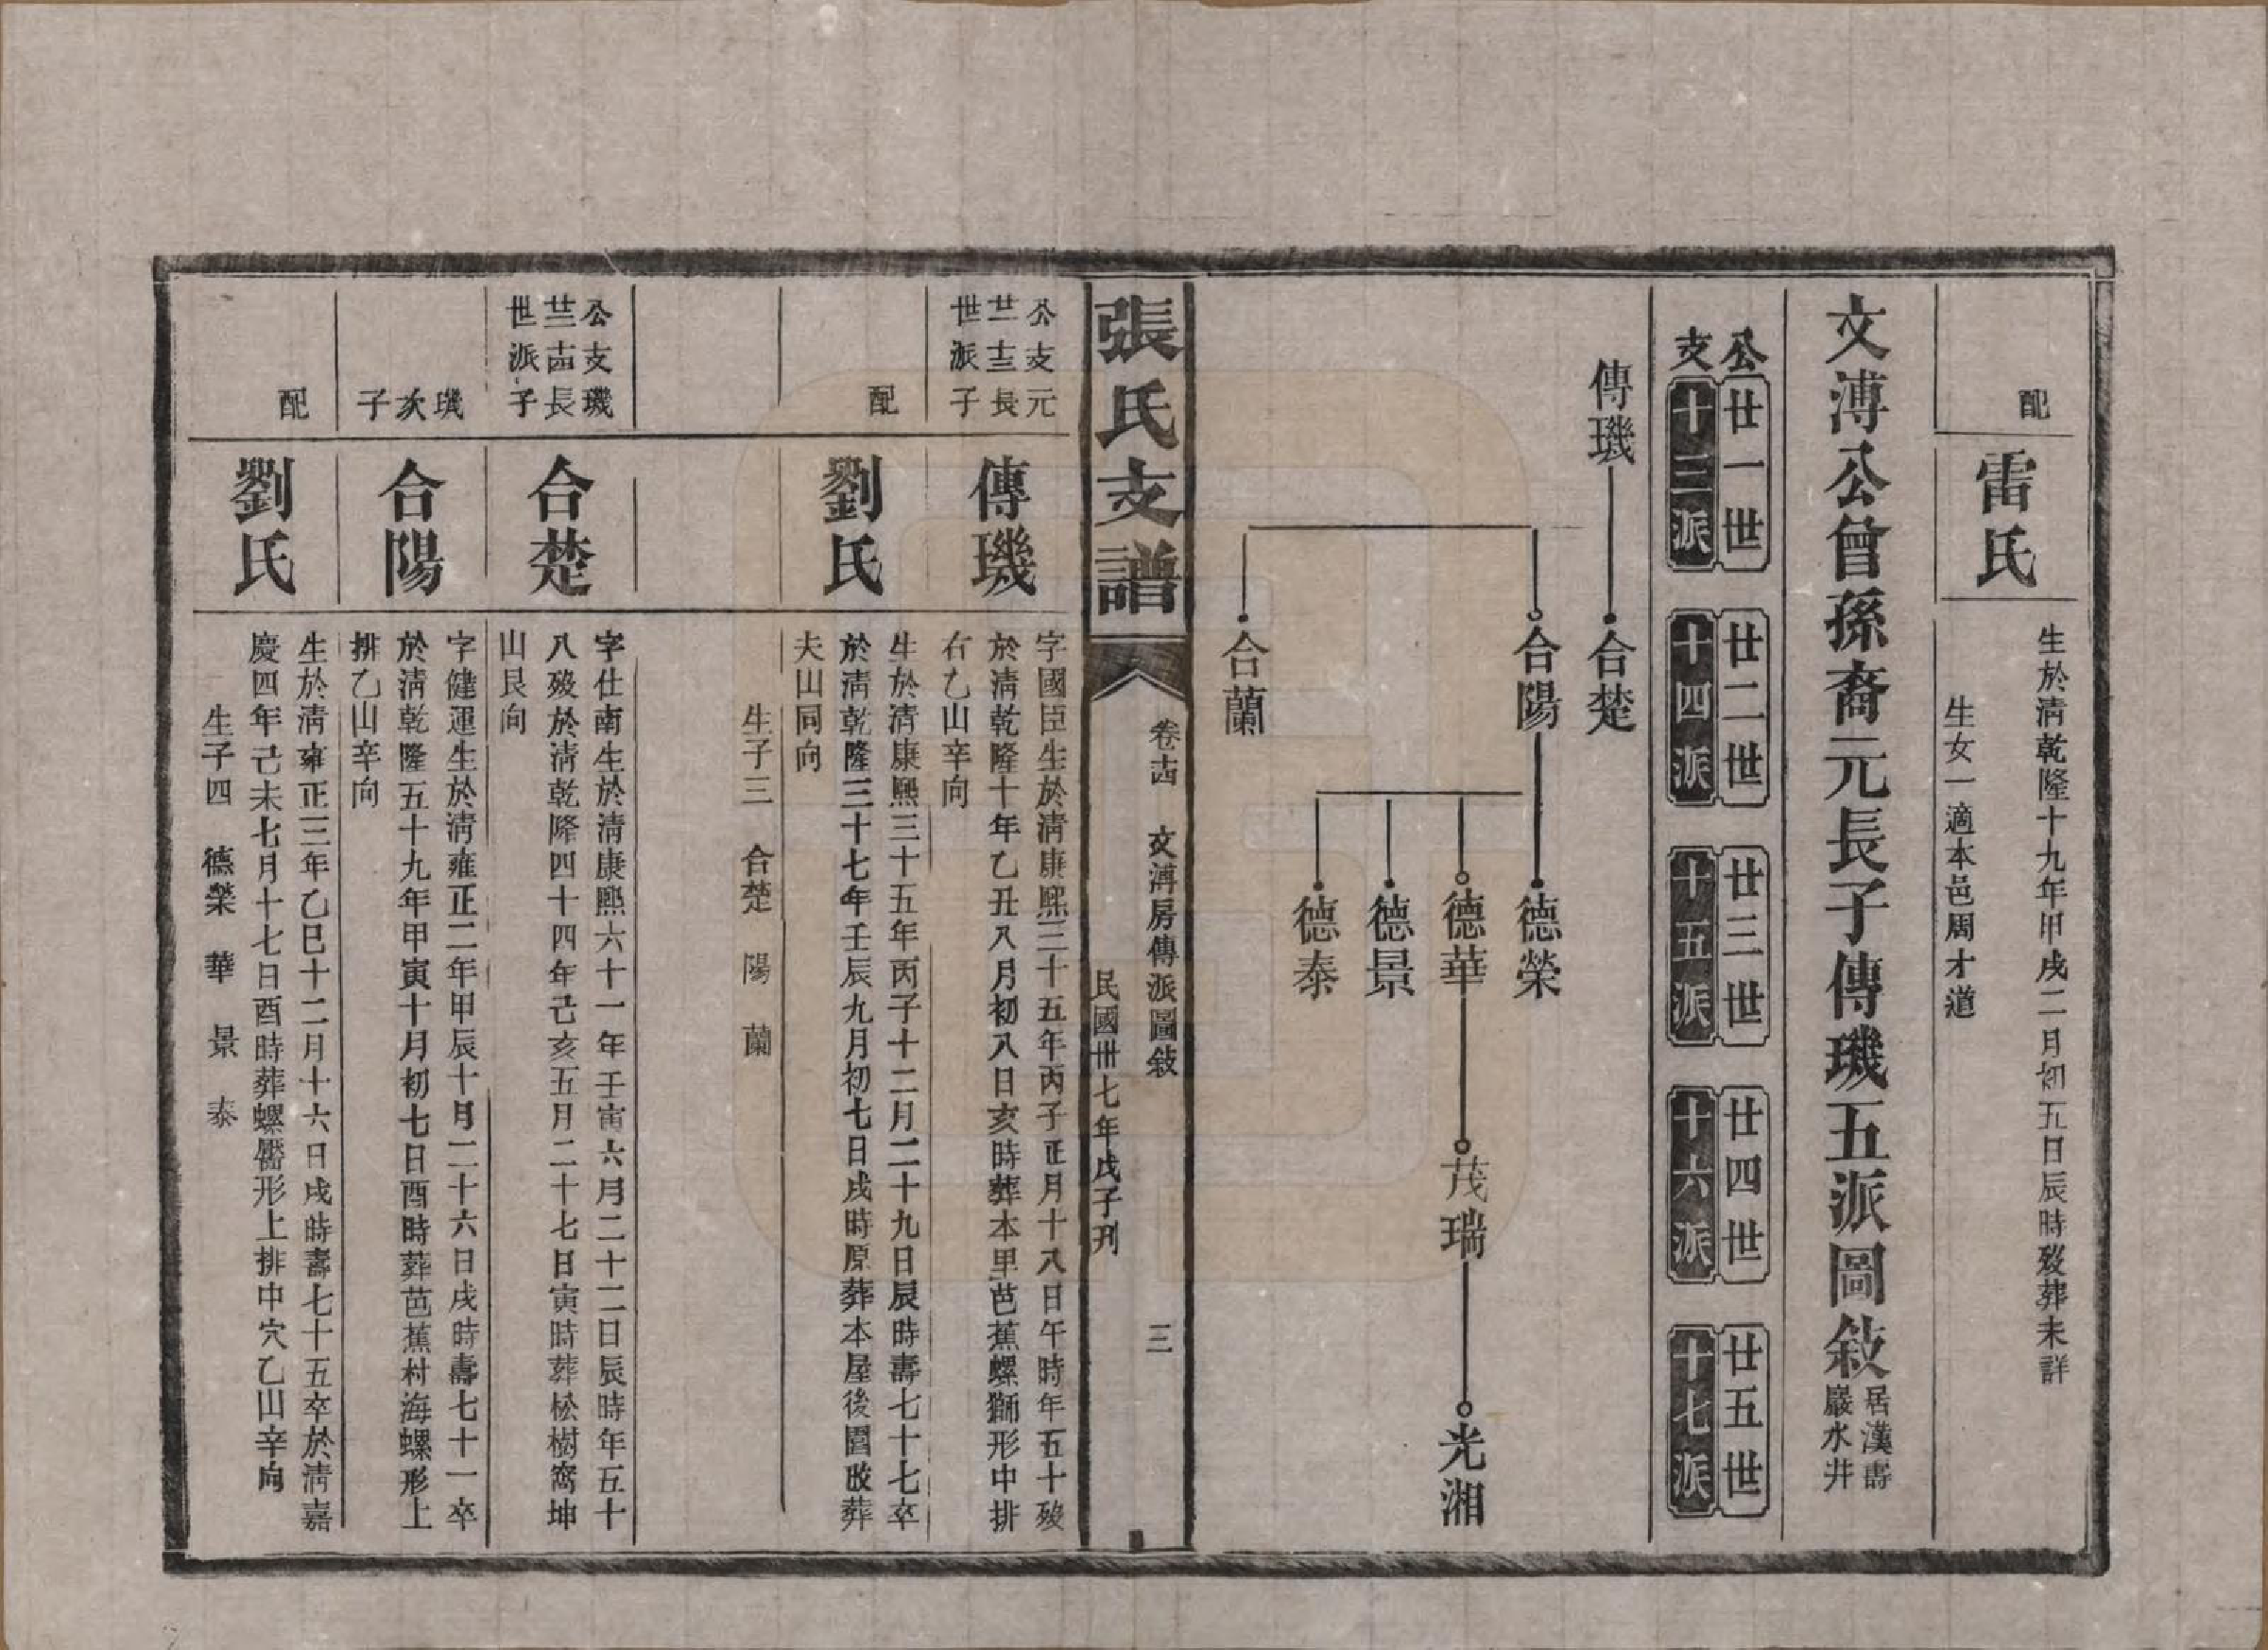 配
雷氏
生於清乾隆十九年甲戌二月初五日辰時歿葬未詳
生女一適本邑周才道
文溥公曾孫裔元長子傳璣五派圖敘
居漢壽
巖水井
公
支
廿一世
十三派
廿二世
十四派
廿三世
十五派
廿四世
十六派
廿五世
十七派
傳璣
合楚
合陽
合蘭
德榮
德華
德景
德泰
茂瑞
光湘
張氏支譜
卷十四
文溥房傳派圖敘
三
民國卅七年戊子刋
公支元
廿二十三長
世派子
傳璣
字國臣生於清康熙三十五年丙子正月十八日午時年五十歿
於清乾隆十年乙丑八月初八日亥時葬本里芭蕉螺獅形中排
右乙山辛向
配
劉氏
生於清康熙三十五年丙子十二月二十九日辰時壽七十七卒
於清乾隆三十七年壬辰九月初七日戌時原葬本屋後園改葬
夫山同向
生子三 合楚 陽 蘭
公支璣
廿三十四長
世派子
合楚
字仕南生於清康熙六十一年壬寅六月二十二日辰時年五十
八歿於清乾隆四十四年己亥五月二十七日寅時葬松樹窩坤
山艮向
璣
次
子
合陽
字健運生於清雍正二年甲辰十月二十六日戌時壽七十一卒
於清乾隆五十九年甲寅十月初七日酉時葬芭蕉村海螺形上
排乙山辛向
配
劉氏
生於清雍正三年乙巳十二月十六日戌時壽七十五卒於清嘉
慶四年己未七月十七日酉時葬螺靨形上排中穴乙山辛向
生子四 德榮 華 景 泰